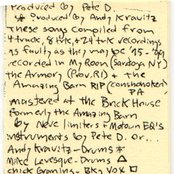 Produced by Pete D.
* Produced by Andy Kravitz
These songs compiled from
4 track, 8 trk + 24 trk recordings
as faulty as they may be 95-99
recorded in My Room (Sardoga NY)
the Armory (Prov. RI) + the
Amazing Barn RIP (Conshohocken
PA
mastered at the Brick House
formerly the Amazing Barn
by Neve limiters + Motown EQ's
instruments by Pete D. or...
Andy Kravitz - Drums *
Mike Levesque - Drums △
Chick Graning - Bk's Vox □